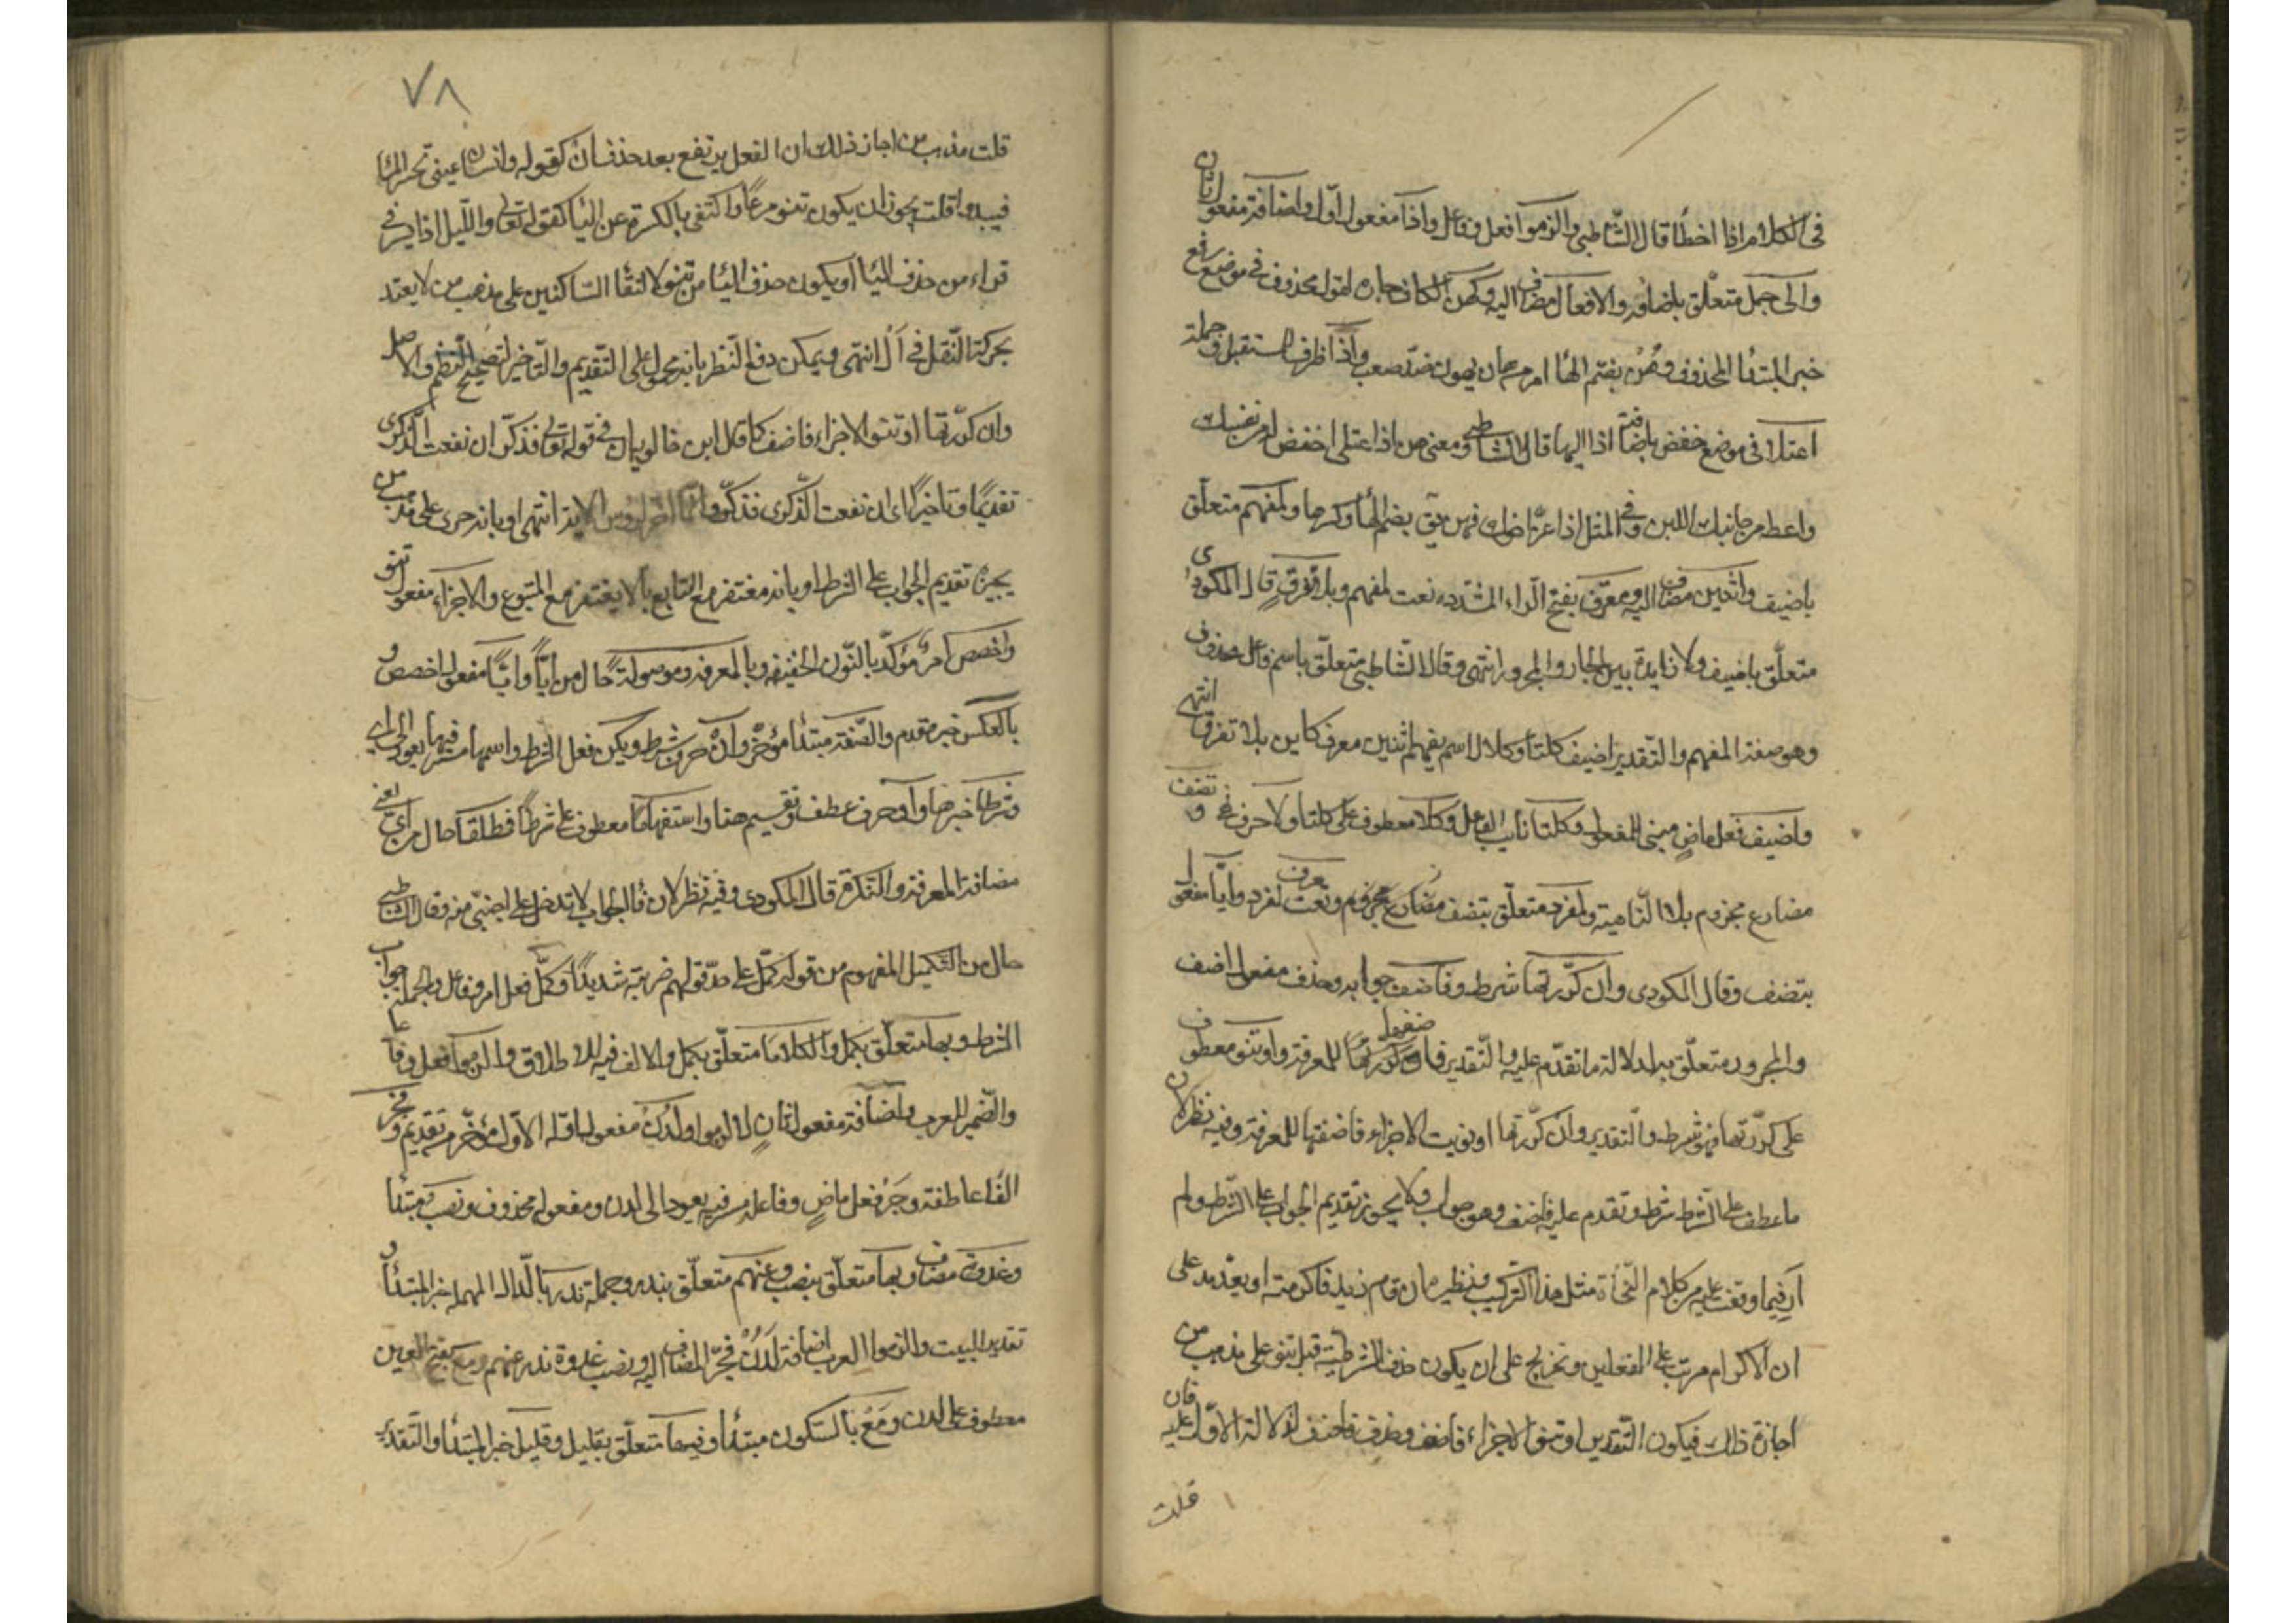 في الكلام اذا اخطأ قال الشاطبي والزموا فعل وفاعل واذا مفعول اول واضافة مفعول ثان
والى جمل متعلق باضافة والافعال مضاف اليه وكهن الكاف جاره لقول محذوف في موضع رفع
خبر المبتدأ المحذوف وهُنْ بضم الهاء امر من هان يهون ضد صعب واذا ظرف المستقبل وجملة
اعتلا في موضع خفض باضافة اذا اليها قال الشاطبي ومعنى هن اذا اعتلى اخفض له نفسك
واعط من جانبك اللين وفي المثل اذا عز اخوك فهن بضم الها وكسرها ولمفهم متعلق
باضيف واثنين مضاف اليه ومعرّف بفتح الراء المشدده نعت لمفهم وبلا تفرق قال المكودى
متعلق باضيف ولا زايدة بين الجار والمجرور انتهى وقال الشاطبي متعلق باسم فاعل محذوف
وهو صفة المفهم والتقدير اضيف كلتا وكلا لاسم يفهم اثنين معرف كاين بلا تفرق انتهى
واضيف فعل ماضٍ مبني للمفعول وكلتا نايب الفاعل وكلا معطوف على كلتا ولا حرف نهى وتضف
مضارع مجزوم بلا الناهية ولمفرد متعلق بتضف معرف نعت لمفرد وايًّا مفعول
بتضف وقال المكودى وان كرّرتها شرط وفاضف جوابه وحذف مفعول اضف
والمجرور متعلق به لدلالة ما تقدم عليه والتقدير فان كررتها فضفها للمعرفة واو تنو معطوف
على كرّرتها فهو شرط والتقدير وان كرّرتها او نويت الاجزاء فاضفها للمعرفة وفيه نظر لان
ما عطف على الشرط شرط وتقدم عليه فاضف وهو جواب ولا يجوز تقديم الجواب على الشرط ولم
ار فيما وقفت عليه من كلام النحاة مثل هذا التركيب ونظيره ان قام زيد فاكرمته او يقعد يدل على
ان الاكرام مرتب على الفعلين وتخريجه على ان يكون حذف الشرطية قبل تنو على مذهب من
اجازة ذلك فيكون التقدير او تنو الاجزاء فاضف وحذف فاضف لدلالة الاوّل عليه فان
قلت
٧٨
قلت مذهب من اجاز ذلك ان الفعل يرتفع بعد حذف ان كقوله وانسان عيني تحسر الما
فيبدو قلت يجوز ان يكون تنو مرفوعًا واكتفى بالكسرة عن اليا كقوله تعالى والليل اذا يسر في
قراءة من حذف اليا او يكون حذف اليا من تنو لالتقا الساكنين على مذهب من لا يعتد
بحركة النقل في اَلْ انتهى ويمكن دفع النظر بانه محمول على التقديم والتاخير لتصحيح النظم والاصل
وان كرّرتها او تنو الاجزاء فاضف كما قال ابن خالويه ان في قوله تعالى فذكّر ان نفعت الذكرى
تقديمًا وتاخيرًا اى ان نفعت الذكرى فذكّر وانما الاية انتهى او بانه جرى على مذهب من
يجيز تقديم الجواب على الشرط او بانه مغتفر مع التابع ما لا يغتفر مع المتبوع والاجزاء مفعول تنو
واخصصن امر مؤكّد بالنون الخفيفه وبالمعرفه وموصولة حال من ايًّا وايًّا مفعول اخصص و
بالعكس خبر مقدم والصّفة مبتدأ مؤخر وان حرف شرط ويكن فعل الشرط واسمها مستتر فيها يعود الى اى
وشرطًا خبرها واو حرف عطف وتقسيم هنا واستفهامًا معطوف على شرطًا فطلقًا حال من اي يعني
مضافة المعرفة والنكرة قال المكودى وفيه نظر لان فا الجواب لا تدخل على اجنبي منه وقال الشاطبي
حال من التكميل المفهوم من قوله كمّل على حدّ قولهم ضربته شديدًا وكمّل فعل امر وفاعل والجملة جواب
الشرط وبها متعلق بكمل والكلاما متعلق بكمل والالف فيه للاطلاق والزموا فعل وفاعل
والضمير للعرب واضافة مفعول ثانٍ لالزموا ولدن مفعوله الاوّل مؤخّر من تقديم وفجر
الفا عاطفة وجَرّ فعل ماضٍ وفاعله مستتر فيه يعود الى لدن ومفعوله محذوف ونصب مبتدأ
وغدوة مضاف وبها متعلق بنصب وعنهم متعلق بندر وجملة ندر بالدال المهملة خبر المبتدأ و
تقدير البيت والزموا العرب اضافة لَدُنْ فجرّ المضاف اليه ونصب غدوة ندر عنهم ومع بفتح العين
معطوف على لدن ومَعْ بالسكون مبتدأ وفيها متعلق بقليل وقليل خبر المبتدأ والتقدير